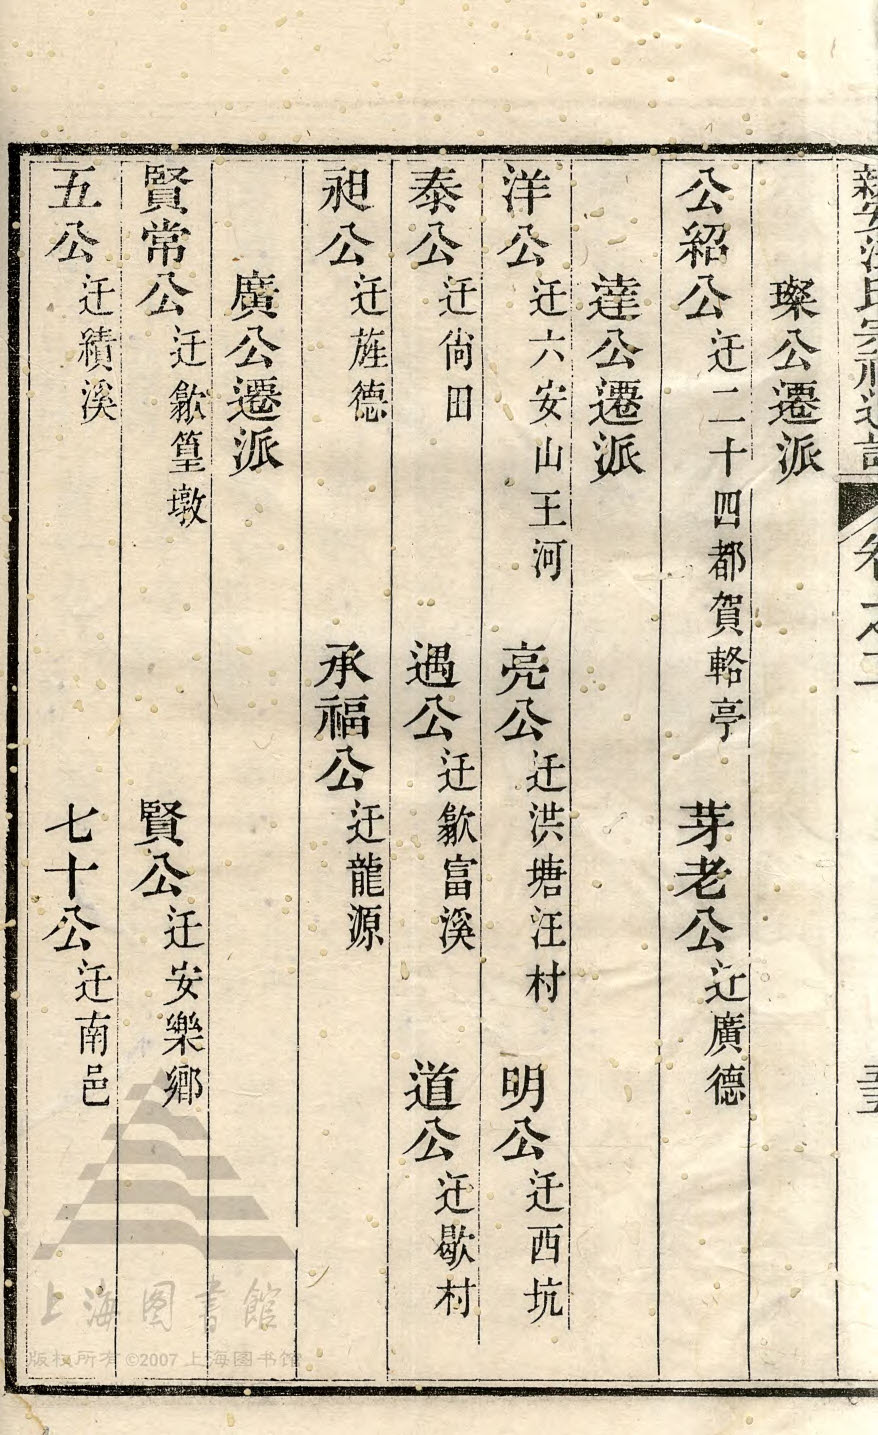 新安汪氏宗祠通譜 卷之二 五
璨公遷派
公紹公 迁二十四都賀輅亭 芽老公 迁廣德
達公遷派
洋公 迁六安山王河 亮公 迁洪塘汪村 明公 迁西坑
泰公 迁尙田 遇公 迁歙富溪 道公 迁歇村
昶公 迁旌德 承福公 迁龍源
廣公遷派
賢常公 迁歙篁墩 賢公 迁安樂鄉
五公 迁績溪 七十公 迁南邑
上海图書館
版权所有©2007 上海图书馆